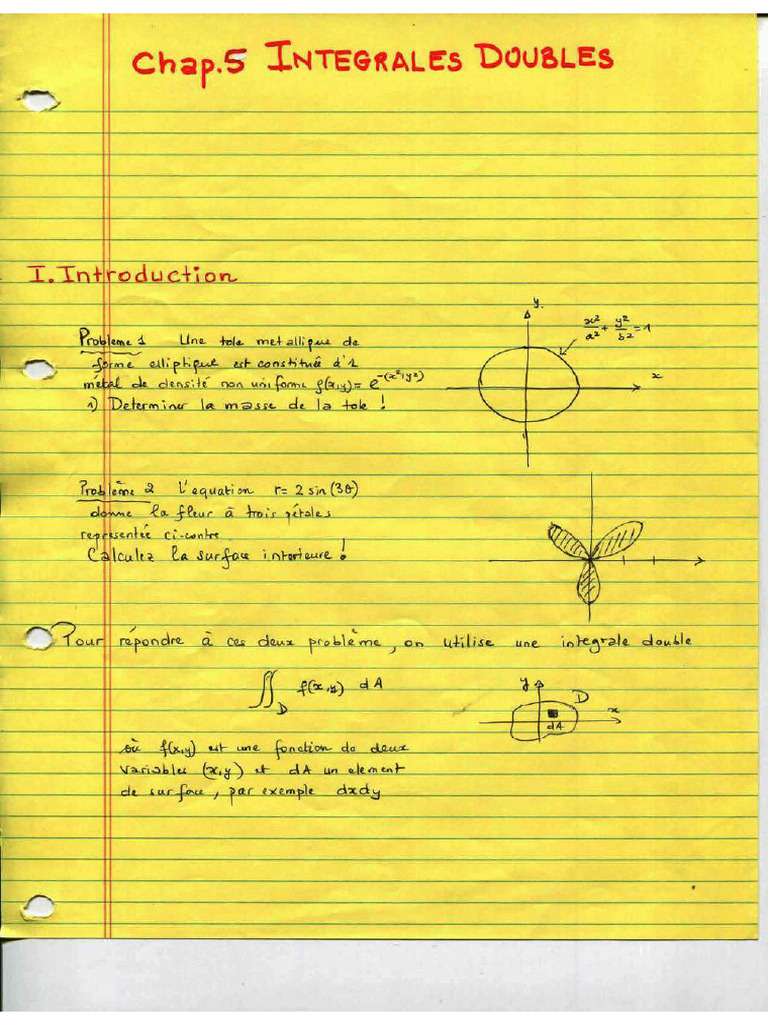 Chap.5 INTEGRALES DOUBLES
I. Introduction
y
x²/a² + y²/b² = 1
x
Probleme 1 Une tole metallique de
forme elliptique est constituée d'1
métal de densité non uniforme f(x,y) = e^-(x²+y²)
1) Determiner la masse de la tole !
Problème 2 L'equation r = 2 sin(3θ)
donne la fleur à trois pétales
representée ci-contre
Calculez la surface interieure !
Pour répondre à ces deux problème, on utilise une integrale double
∬_D f(x,y) dA
y
D
x
dA
où f(x,y) est une fonction de deux
variables (x,y) et dA un element
de surface, par exemple dxdy